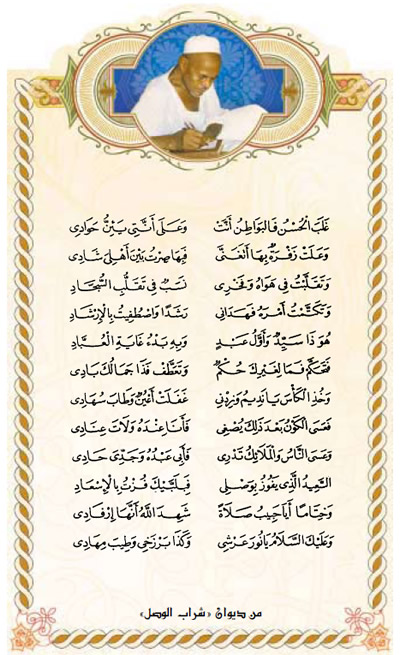 غَلَبَ الْحُسْنُ فَالْبَوَاطِنُ أَنَّتْ وَعَلَى أَنَّتِي يَئِنُّ جَوَادِي
وَعَلَتْ زَفْرَةٌ بِهَا أَتَغَنَّى فَبِهَا صِرْتُ بَيْنَ أَهْلِيَ شَادِي
وَتَقَلَّبْتُ فِي هَوَاهُ وَفَخْرِي نَسَبٌ فِي تَقَلُّبِ السُّجَّادِ
وَتَكَتَّمْتُ أَمْرَهُ فَهَدَانِي رَشَدًا وَاصْطُفِيتُ بِالْإِرْشَادِ
هُوَ ذَا سَيِّدٌ وَأَوَّلُ عَبْدٍ وَبِهِ بَدْءُ غَايَةِ الْعُبَّادِ
فَتَحَكَّمْ فَمَا لِغَيْرِكَ حُكْمٌ وَتَعَطَّفْ فَذَا جَمَالُكَ بَادِي
وَخُذِ الْكَأْسَ يَا نَدِيمُ وَزِدْنِي غَفَلَتْ أَعْيُنٌ وَطَابَ سُهَادِي
فَعَسَى الْكَوْنُ بَعْدَ ذَلِكَ يُصْغِي فَأَنَا عَبْدُهُ وَلَاتَ عِنَادِي
وَعَسَى النَّاسُ وَالْمَلَائِكُ تَدْرِي فَأَبِي عَبْدُهُ وَجَدِّيَ حَادِي
السَّعِيدُ الَّذِي يَفُوزُ بِوَصْلِي فَبِلَبَّيْكَ فُزْتُ بِالْإِسْعَادِ
وَخِتَامًا أَيَا حَبِيبُ صَلَاةً شَهِدَ اللَّهُ أَنَّهَا إِرْفَادِي
وَعَلَيْكَ السَّلَامُ يَا نُورَ عَرْشِي وَكَذَا بَرْزَخِي وَطِيبَ مِهَادِي
من ديوان «شراب الوصل»